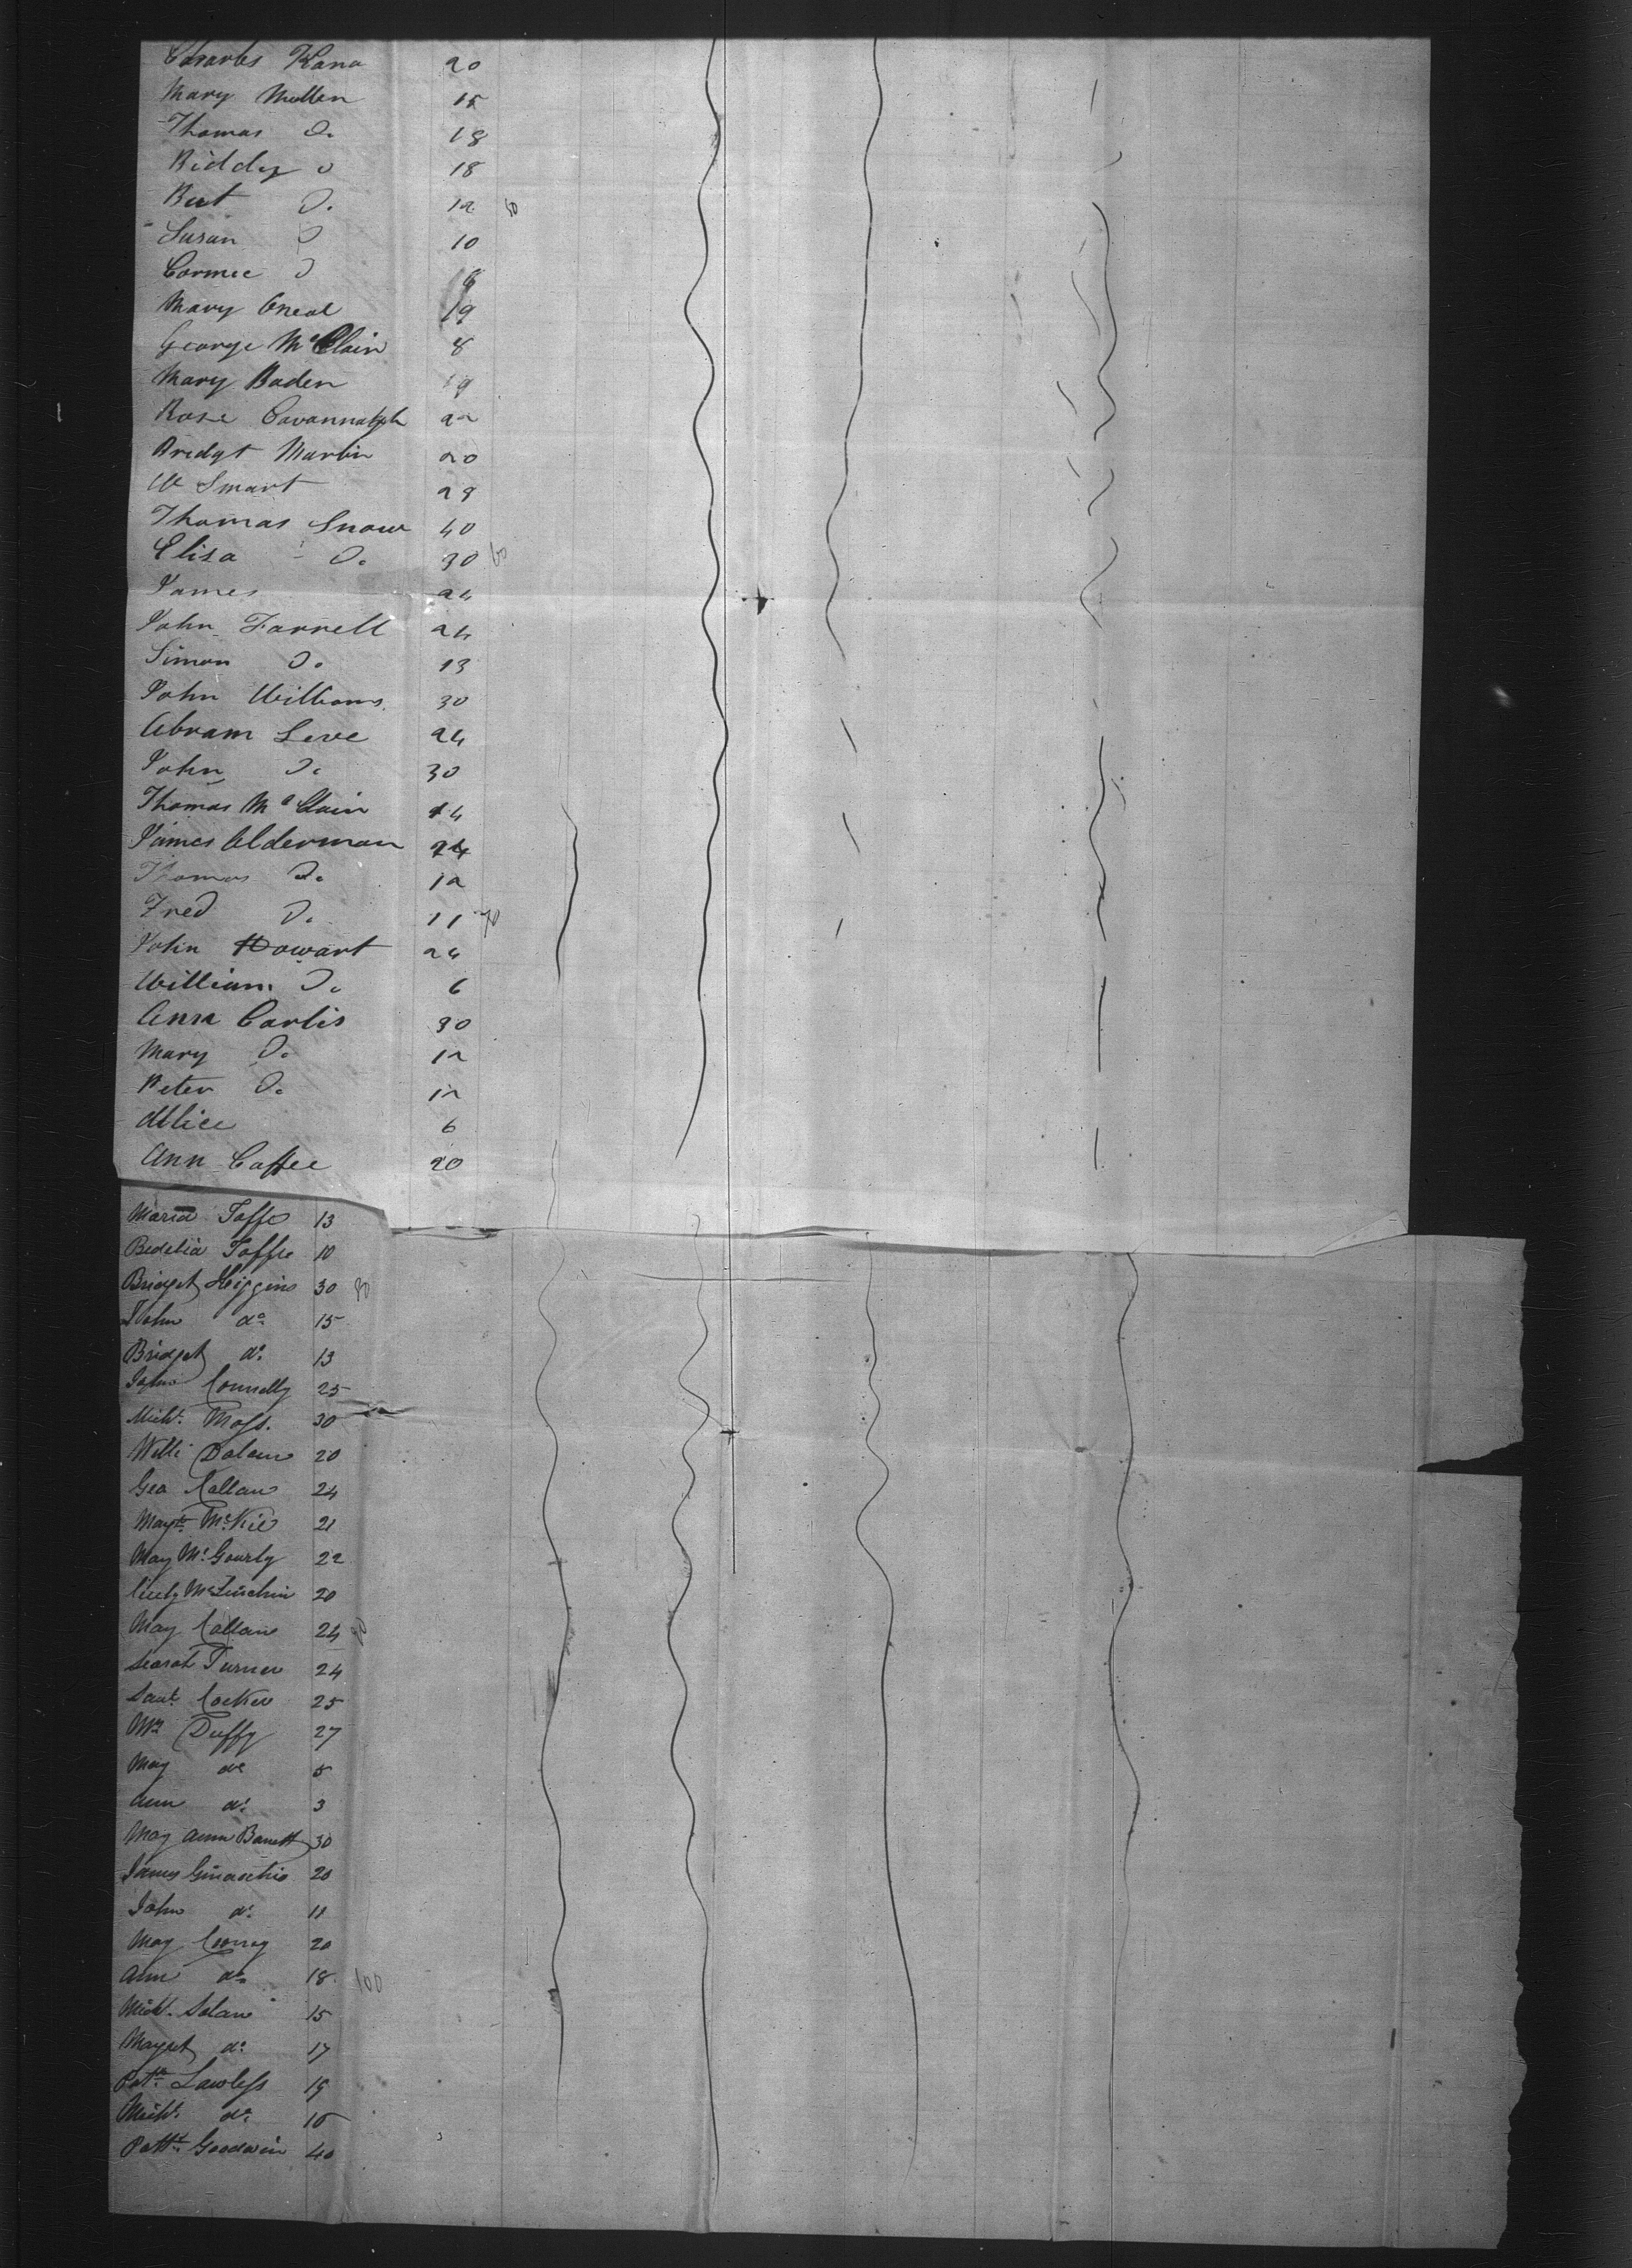 Charles Kana 20
Mary Mullen 15
Thomas Do. 18
Biddy Do 18
Do. 12 50
Susan Do 10
Cormic Do 8
Mary Oneal 19
George McClain 8
Mary Boden 19
Rose Cavannaugh 22
Bridgt Martin 20
W Smart 28
Thomas Snow 40
Elisa Do. 30 60
James 24
John Farrell 24
Simon Do. 13
John Williams 30
Abram Leve 24
John Do. 30
Thomas McClain 14
James Alderman 24
Thomas Do. 12
Fred Do. 11 70
John Howart 24
William Do. 6
Anna Carlis 30
Mary Do. 12
Peter Do. 12
Allice 6
Ann Caffee 20
Maria Taffe 13
Bedelia Taffe 10
Bridget Higgins 30 80
John do. 15
Bridget do. 13
John Connelly 25
Michl. Moss. 30
Willi Dolan 20
Geo Callan 24
Maygt. McKie 21
May McGourty 22
20
May Callan 24 90
Sarah Turner 24
Saml. Cocker 25
Mr Duffy 27
May do 5
Ann do. 3
May Ann Barrett 30
James Ginocchio 20
John do. 11
May Cooney 20
Ann do. 18 100
Michl. Solan 15
Maygret do. 17
Patk. Lawless 19
Michl. do. 16
Pattk. Goodwin 40